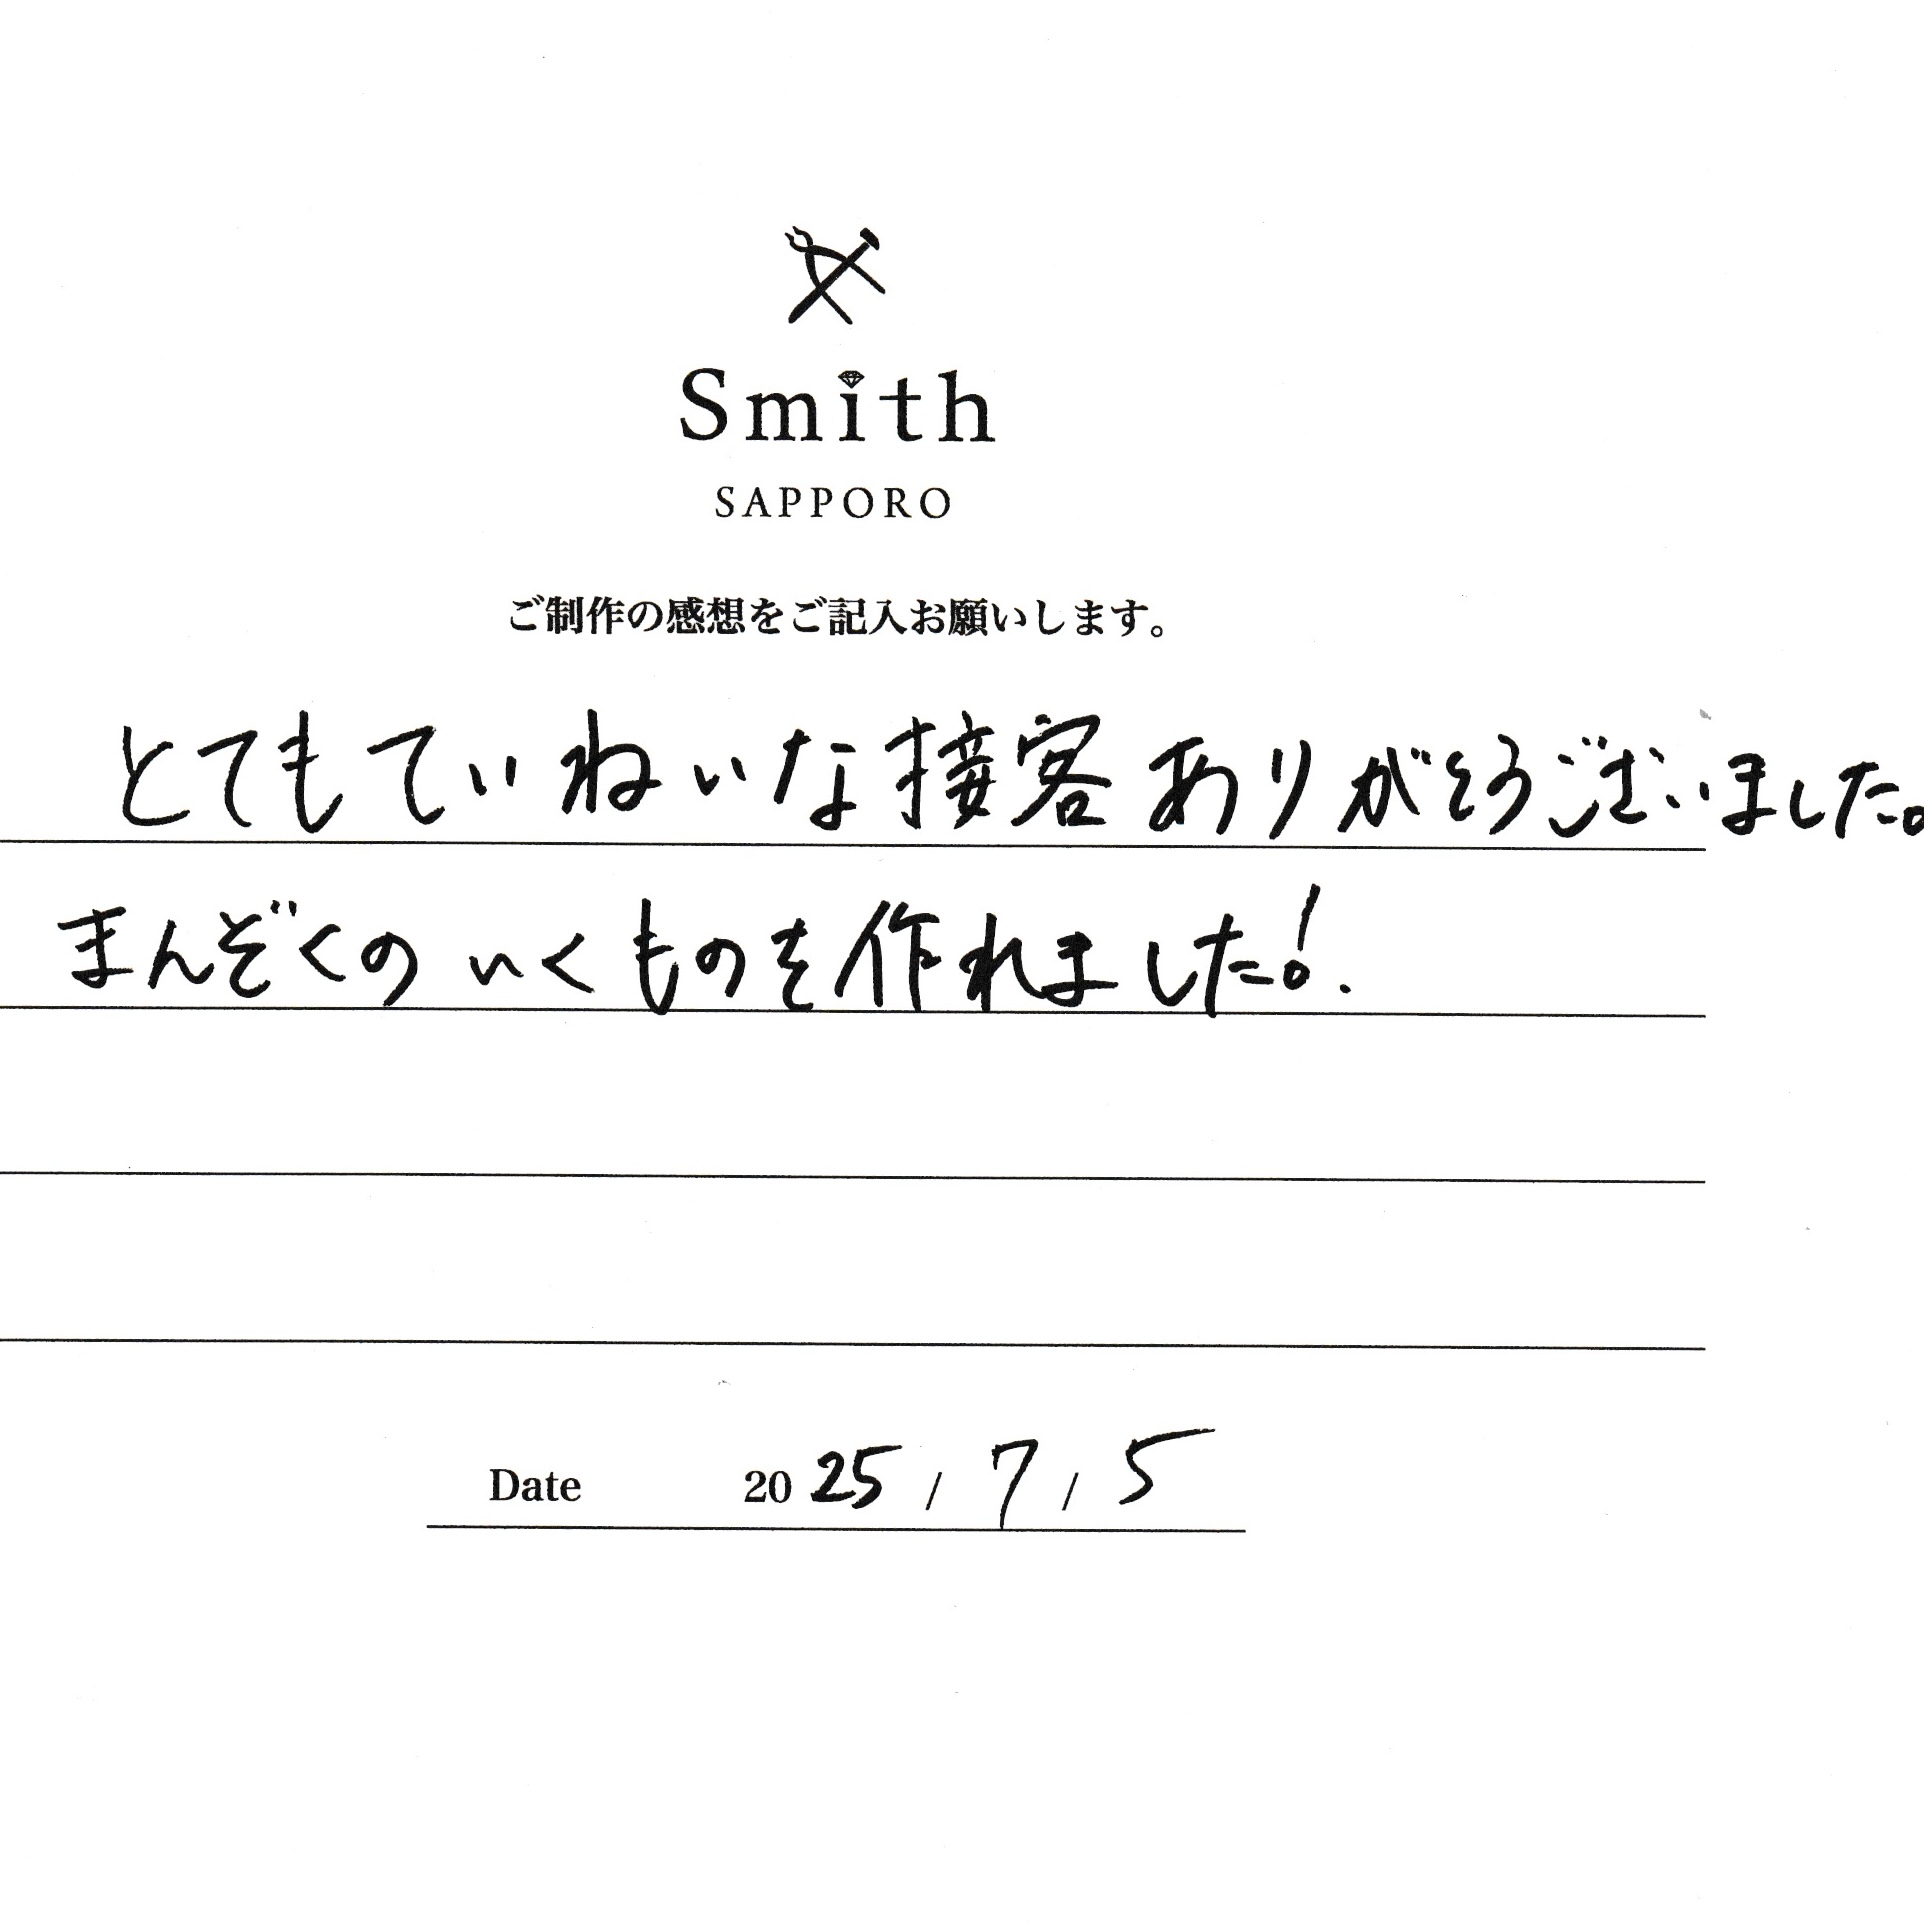 Smith
SAPPORO
ご制作の感想をご記入お願いします。
とてもていねいな接客ありがとうございました。
まんぞくのいくものを作れました!.
Date 2025 / 7 / 5